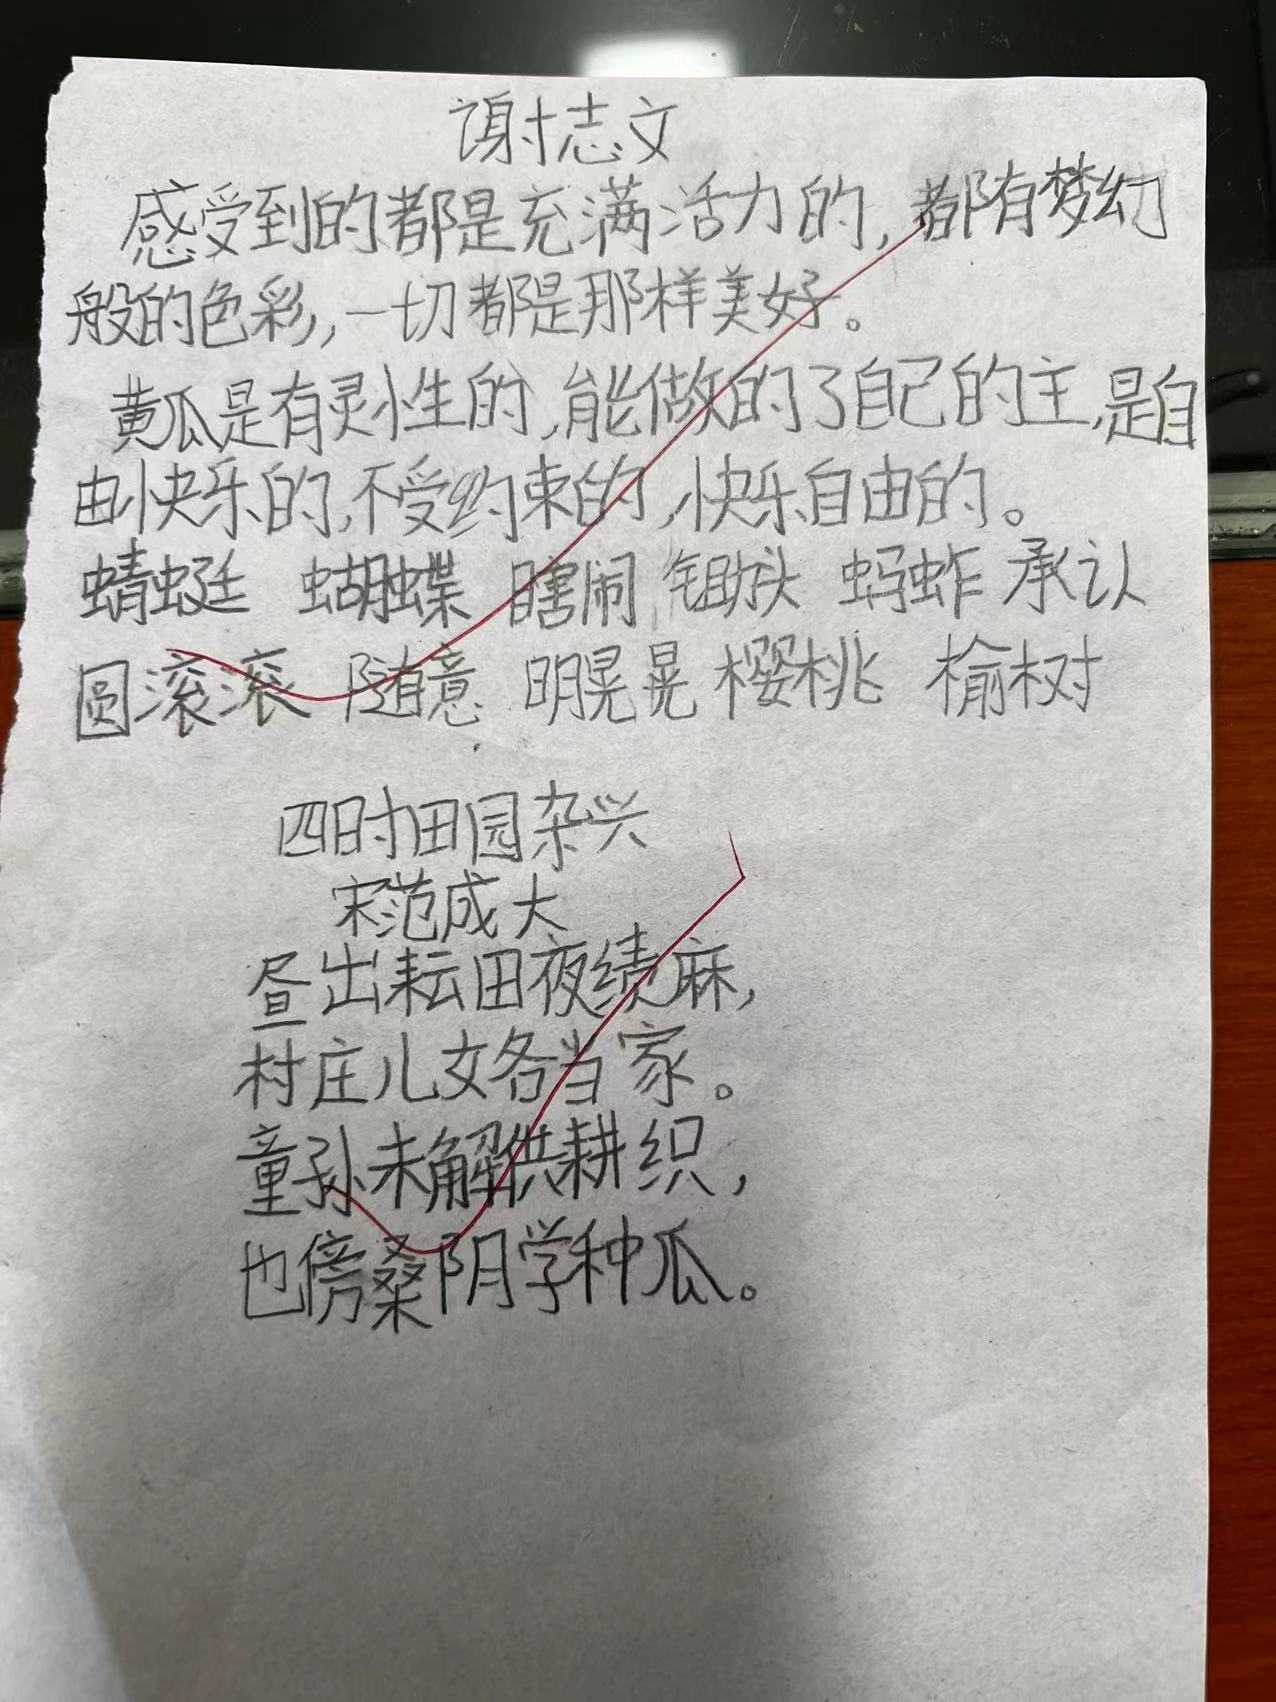 谢志文
感受到的都是充满活力的,都有梦幻
般的色彩,一切都是那样美好。
黄瓜是有灵性的,能做的了自己的主,是自
由快乐的,不受约束的,快乐自由的。
蜻蜓 蝴蝶 瞎闹 锄头 蚂蚱 承认
圆滚滚 随意 明晃晃 樱桃 榆树
四时田园杂兴
宋范成大
昼出耘田夜绩麻,
村庄儿女各当家。
童孙未解供耕织,
也傍桑阴学种瓜。